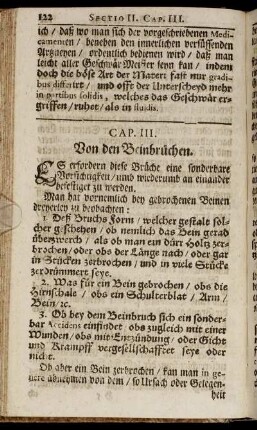 122 SECTIO II. CAP. III.
ich / daß wo man sich der vorgeschriebenen Medi-
camenten / beneben den innerlichen versüssenden
Artzneyen / ordentlich bedienen wird / daß man
leicht aller Geschwär Meister seyn kan / indem
doch die böse Art der Materi fast nur gradi-
bus differirt / und offt der Unterscheyd mehr
in partibus solidis, welches das Geschwär er-
griffen / ruhet / als in fluidis.
CAP. III.
Von den Beinbrüchen.
ES erfordern diese Brüche eine sonderbare
Vorsichtigkeit / und wiederumb an einander
befestiget zu werden.
Man hat vornemlich bey gebrochenen Beinen
dreyerley zu beobachten:
1. Deß Bruchs Form / welcher gestalt sol-
cher geschehen / ob nemlich das Bein gerad
überzwerch / als ob man ein dürr Holtz zer-
brochen / oder obs der Länge nach / oder gar
in Stücken zerbrochen / und in viele Stücke
zerdrümmert seye.
2. Was für ein Bein gebrochen / obs die
Hirnschale / obs ein Schulterblat / Arm /
Bein / ec.
3. Ob bey dem Beinbruch sich ein sonder-
bar Accidens einfindet obs zugleich mit einer
Wunden / obs mit Entzündung / oder Gicht
und Krampff vergesellschafftet seye oder
nicht.
Ob aber ein Bein zerbrochen / kan man in ge-
nere abnehmen von dem / so Ursach oder Gelegen-
heit